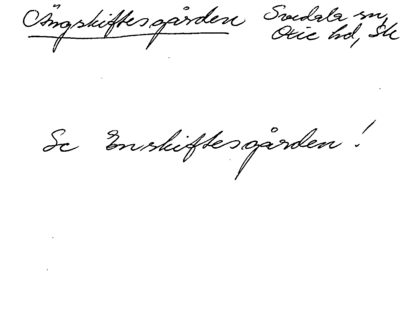 Ängskiftesgården Svedala sn,
Oxie hd, Sk
Se Enskiftesgården!